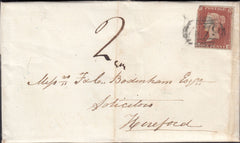 2
Messrs F & C Bodenham Esqrs
Solicitors
Hereford